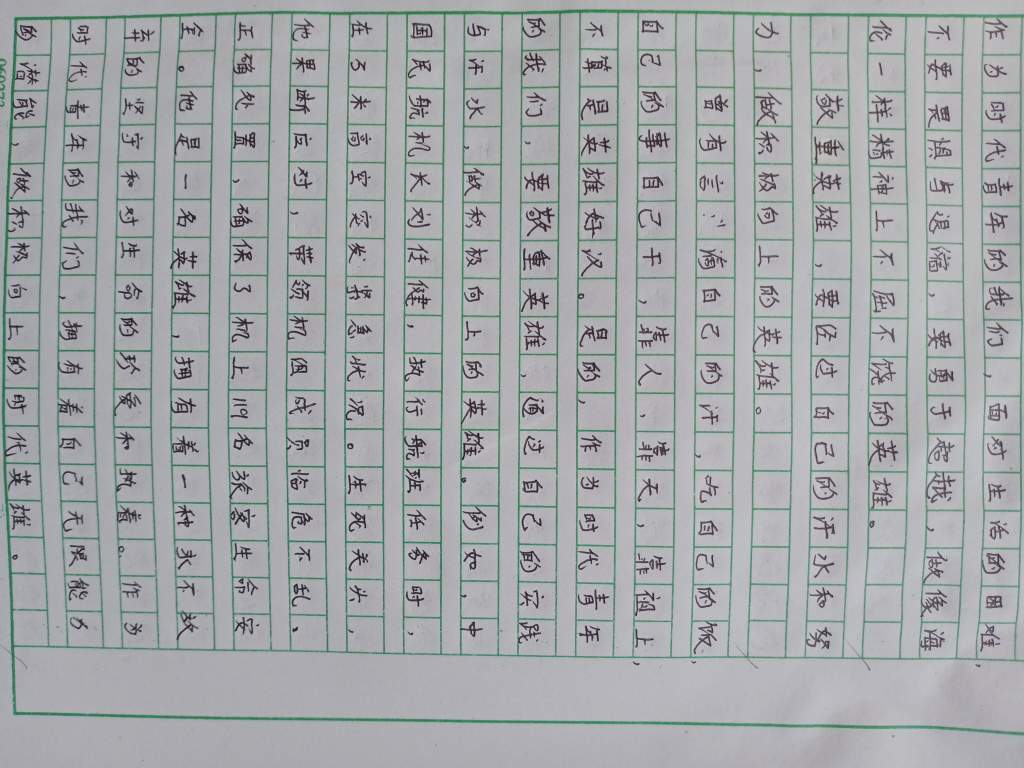 作为时代青年的我们，面对生活的困难，
不要畏惧与退缩，要勇于超越，做像海
伦一样精神上不屈不饶的英雄。
敬重英雄，要经过自己的汗水和努
力，做积极向上的英雄。
曾有言："滴自己的汗，吃自己的饭，
自己的事自己干，靠人、靠天，靠祖上，
不算是英雄好汉。是的，作为时代青年
的我们，要敬重英雄，通过自己的实践
与汗水，做积极向上的英雄。例如，中
国民航机长刘传健，执行航班任务时，
在万米高空突发紧急状况。生死关头，
他果断应对，带领机困成员临危不乱、
正确处置，确保了机上119名旅客生命安
全。他是一名英雄，拥有着一种永不放
弃的坚守和对生命的珍爱和执着。作为
时代青年的我们，拥有着自己无限能力
的潜能，做积极向上的时代英雄。